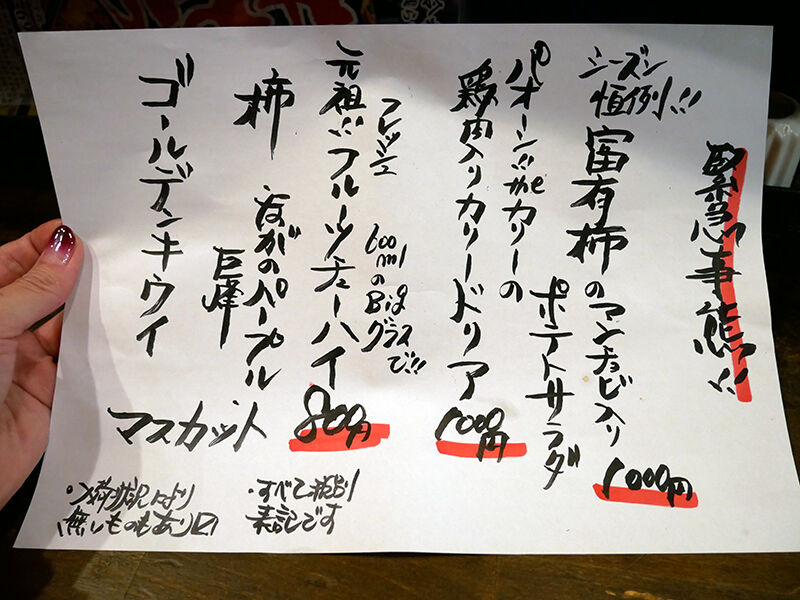 緊急事態!!
シーズン
恒例!!
富有柿のアンチョビ入り
ポテトサラダ
1000円
パオーン!!theカリーの
鶏肉入りカリードリア
1000円
元祖!!フルーツチューハイ
フレッシュ
600mlのBigグラスで!!
800円
柿
ながのパープル
巨峰
ゴールデンキウイ
マスカット
・すべて税別
表記です
・入荷状況により
無いものもあり〼